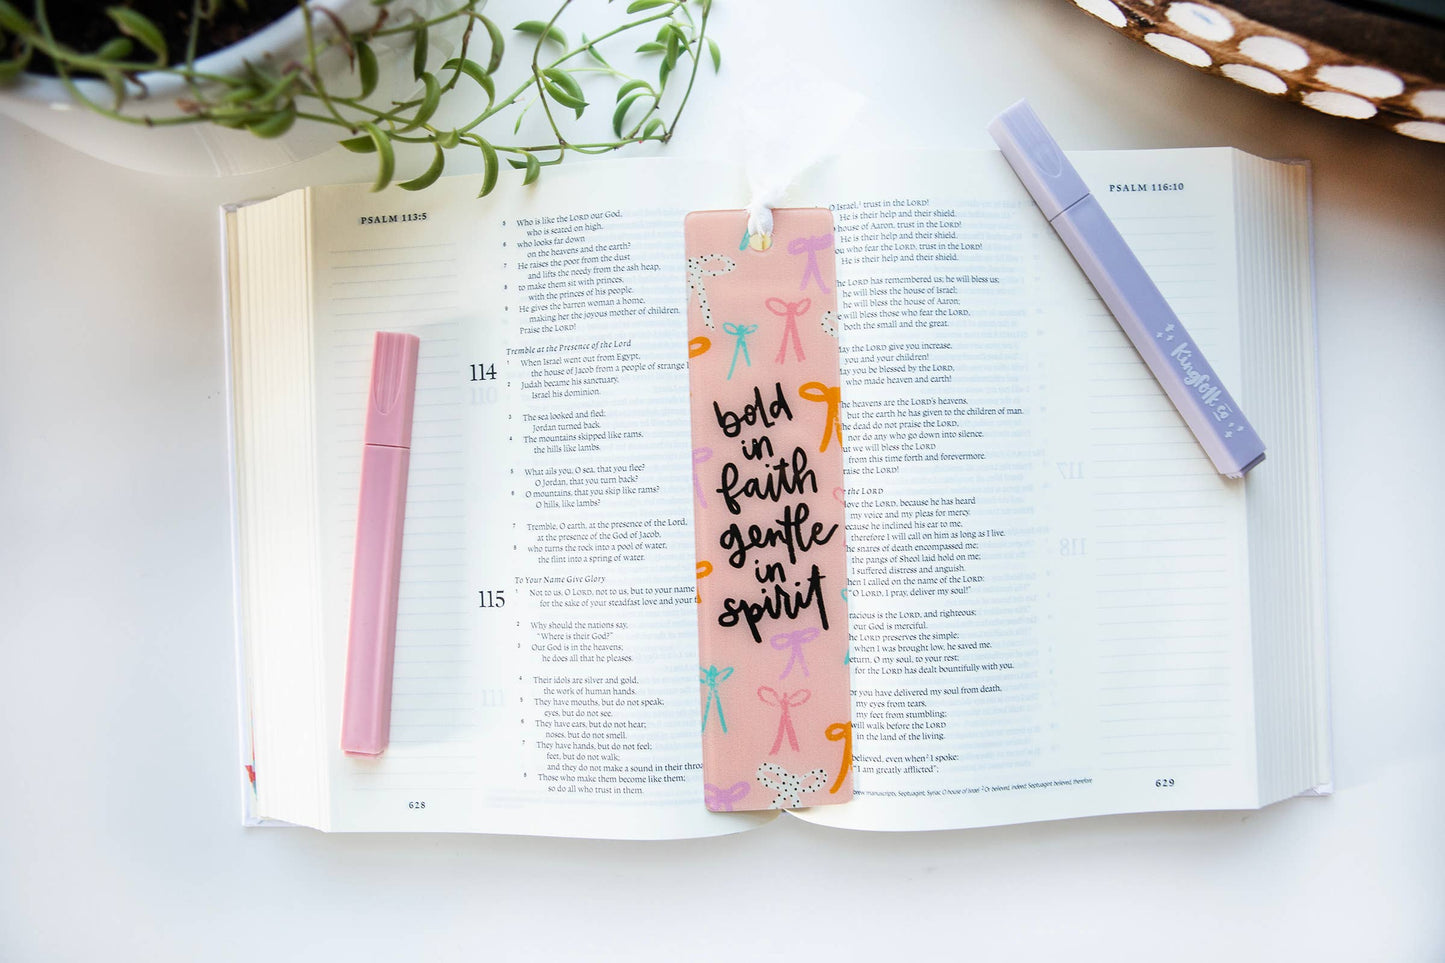 PSALM 113:5
5 Who is like the LORD our God,
who is seated on high,
6 who looks far down
on the heavens and the earth?
7 He raises the poor from the dust
and lifts the needy from the ash heap,
8 to make them sit with princes,
with the princes of his people.
9 He gives the barren woman a home,
making her the joyous mother of children.
Praise the LORD!
Tremble at the Presence of the Lord
114
1 When Israel went out from Egypt,
the house of Jacob from a people of strange
2 Judah became his sanctuary,
Israel his dominion.
3 The sea looked and fled;
Jordan turned back.
4 The mountains skipped like rams,
the hills like lambs.
5 What ails you, O sea, that you flee?
O Jordan, that you turn back?
6 O mountains, that you skip like rams?
O hills, like lambs?
7 Tremble, O earth, at the presence of the Lord,
at the presence of the God of Jacob,
8 who turns the rock into a pool of water,
the flint into a spring of water.
To Your Name Give Glory
115
1 Not to us, O LORD, not to us, but to your name
for the sake of your steadfast love and your
2 Why should the nations say,
"Where is their God?"
3 Our God is in the heavens;
he does all that he pleases.
4 Their idols are silver and gold,
the work of human hands.
5 They have mouths, but do not speak;
eyes, but do not see.
6 They have ears, but do not hear;
noses, but do not smell.
7 They have hands, but do not feel;
feet, but do not walk;
and they do not make a sound in their
8 Those who make them become like them;
so do all who trust in them.
628
bold
in
faith
gentle
in
spirit
PSALM 116:10
O Israel, trust in the LORD!
He is their help and their shield.
house of Aaron, trust in the LORD!
He is their help and their shield.
who fear the LORD, trust in the LORD!
He is their help and their shield.
LORD has remembered us; he will bless us;
he will bless the house of Israel;
he will bless the house of Aaron;
will bless those who fear the LORD,
both the small and the great.
the LORD give you increase,
you and your children!
you be blessed by the LORD,
who made heaven and earth!
heavens are the LORD's heavens,
but the earth he has given to the children of man.
dead do not praise the LORD,
nor do any who go down into silence.
we will bless the LORD
from this time forth and forevermore.
the LORD!
the LORD
love the LORD, because he has heard
my voice and my pleas for mercy.
he inclined his ear to me,
therefore I will call on him as long as I live.
snares of death encompassed me;
the pangs of Sheol laid hold on me;
I suffered distress and anguish.
I called on the name of the LORD:
"O LORD, I pray, deliver my soul!"
is the LORD, and righteous;
our God is merciful.
LORD preserves the simple;
when I was brought low, he saved me.
O my soul, to your rest;
for the LORD has dealt bountifully with you.
you have delivered my soul from death,
my eyes from tears,
my feet from stumbling;
will walk before the LORD
in the land of the living.
believed, even when I spoke:
"I am greatly afflicted";
manuscripts, Septuagint, Syriac O house of Israel 2 Or believed, indeed; Septuagint believed, therefore
629
Kingfolk Co